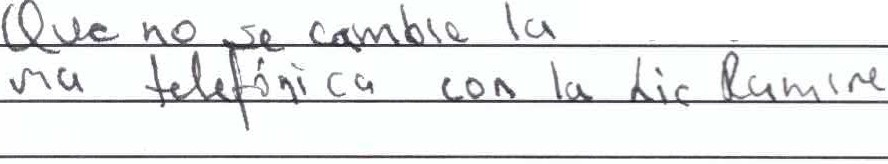 Que no se cambie la
via telefónica con la Lic Ramire